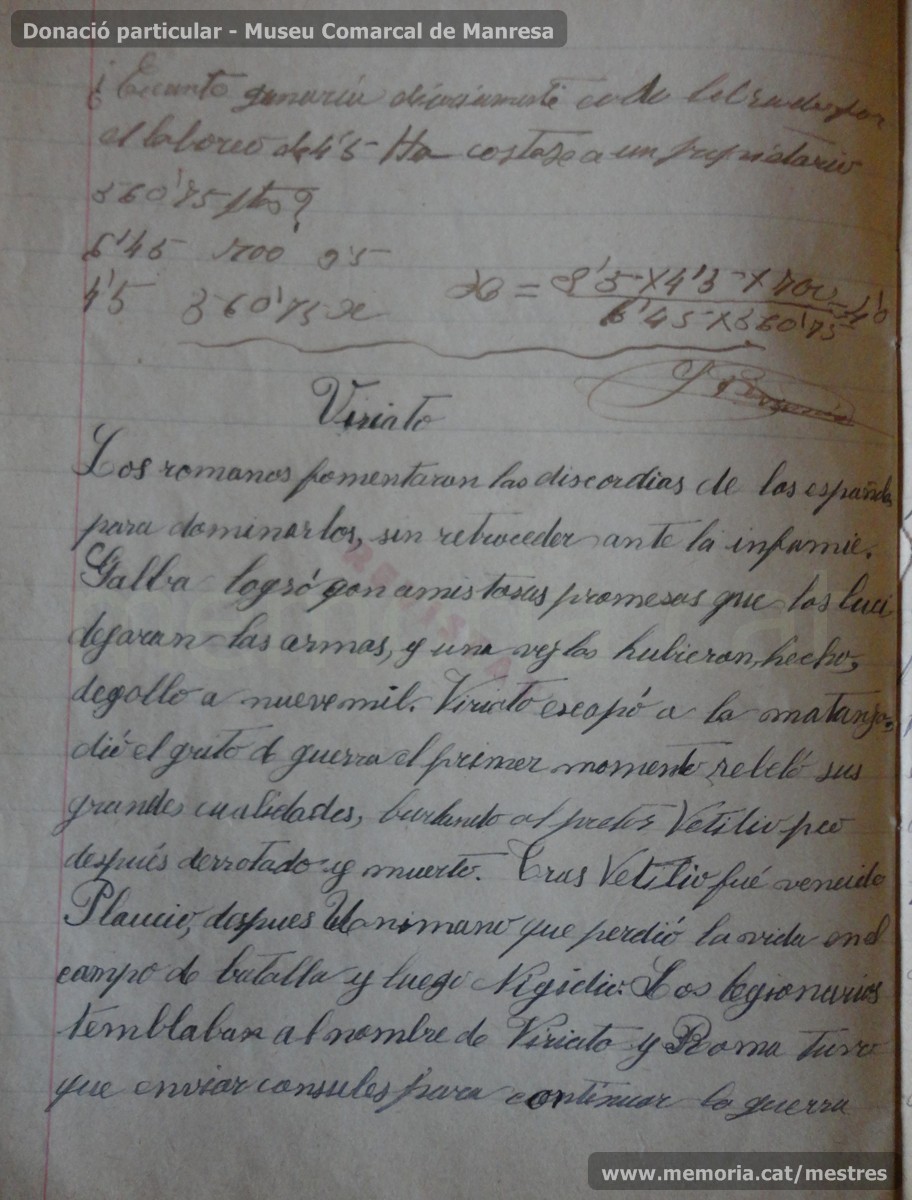 Donació particular - Museu Comarcal de Manresa
¿Cuanto ganaria diariamente cada labrador por
el laboreo de 4'5 Ha costase a un propietario
360'75 ptas?
6'45 700
4'5 360'75 x
Viriato
Los romanos fomentaron las discordias de los españoles
para dominarlos, sin retroceder ante la infamie.
Galba logró con amistosas promesas que los luci
dejaran las armas, y una vez los hubieron, hecho,
degollo a nueve mil. Viriato escapó a la matanza,
dió el grito d guerra el primer momento rebeló sus
grandes cualidades, burlando al pretor Vetilio poco
después derrotado y muerto. Tras Vetilio fué vencido
Plaucio, despues Unimano que perdió la vida en el
campo de batalla y luego Nigidio. Los legionarios
temblaban al nombre de Viriato y Roma tuvo
que enviar consules para continuar la guerra
www.memoria.cat/mestres